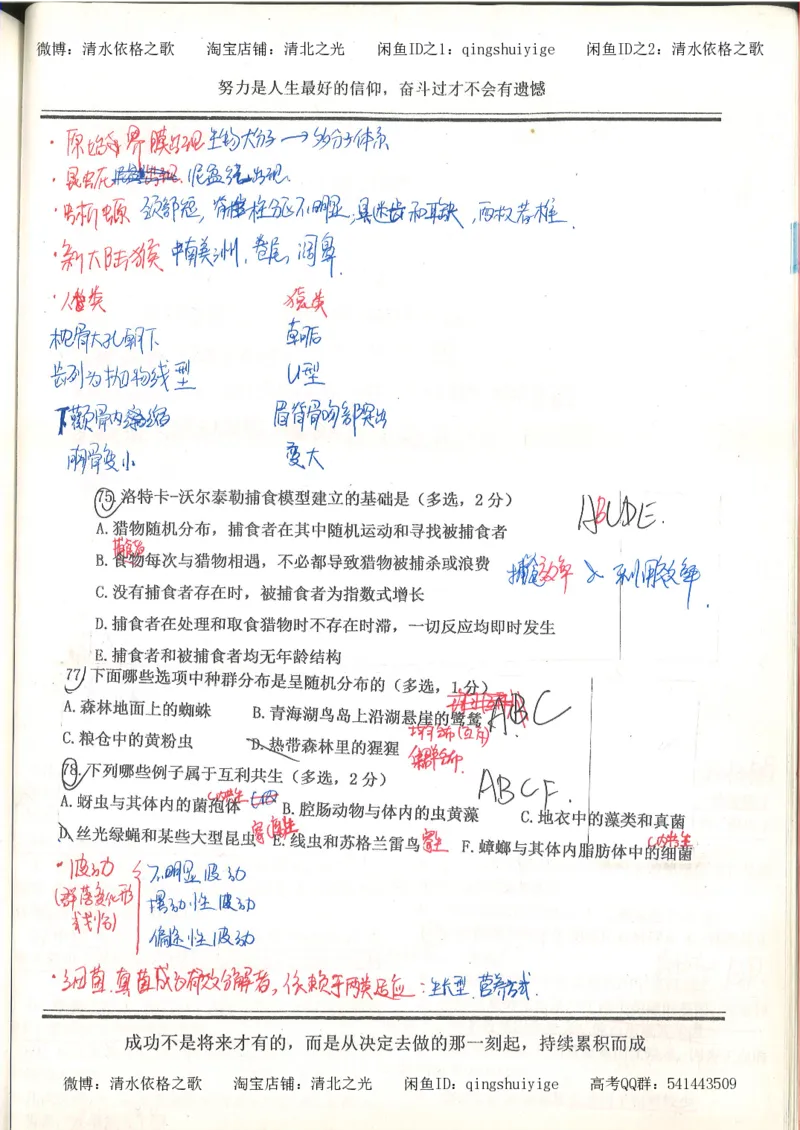 微博：清水依格之歌 淘宝店铺：清北之光 闲鱼ID之1：qingshuiyige 闲鱼ID之2：清水依格之歌
努力是人生最好的信仰，奋斗过才不会有遗憾
·原始 界膜出现 生物大分子→多分子体系
·昆虫在 泥盆纪出现.
·曙猿 颈部短，脊椎 分化不明显，具迷齿和耳缺，西枚若椎
·新大陆猴 中南美洲，卷尾，阔鼻.
·人类 猿类
枕骨大孔朝下 朝后
齿列为抛物线型 U型
下颚骨内缩 眉脊骨吻部突出
胸骨变小 变大
75. 洛特卡-沃尔泰勒捕食模型建立的基础是（多选，2分） ABCDE.
A.猎物随机分布，捕食者在其中随机运动和寻找被捕食者
捕食者
B.食物每次与猎物相遇，不必都导致猎物被捕杀或浪费 捕食效率 利用效率.
C.没有捕食者存在时，被捕食者为指数式增长
D.捕食者在处理和取食猎物时不存在时滞，一切反应均即时发生
E.捕食者和被捕食者均无年龄结构
77 下面哪些选项中种群分布是呈随机分布的（多选，1分） ABC
A.森林地面上的蜘蛛 B.青海湖鸟岛上沿湖悬崖的鹭鸶 均匀分布
C.粮仓中的黄粉虫 D.热带森林里的猩猩 集群分布.
78.下列哪些例子属于互利共生（多选，2分） ABCF.
A.蚜虫与其体内的菌孢体 内共生 B.腔肠动物与体内的虫黄藻 C.地衣中的藻类和真菌
D.丝光绿蝇和某些大型昆虫 寄生 E.线虫和苏格兰雷鸟 寄生 F.蟑螂与其体内脂肪体中的细菌 内共生
·波动 不明显波动
（群落变化形式划分） 摆动性波动
偏途性波动
·细菌、真菌成为有效分解者，依赖于两类适应：生长型、营养方式.
成功不是将来才有的，而是从决定去做的那一刻起，持续累积而成
微博：清水依格之歌 淘宝店铺：清北之光 闲鱼ID：qingshuiyige 高考QQ群：541443509